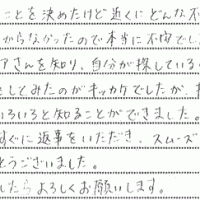 ことを決めたけど近くにどんな不
からなかったので本当に不安でした
アさんを知り、自分が探している
をしてみたのがキッカケでしたが、
いろいろと知ることができました。
すぐに返事をいただき、スムーズ
とうございました。
したらよろしくお願いします。